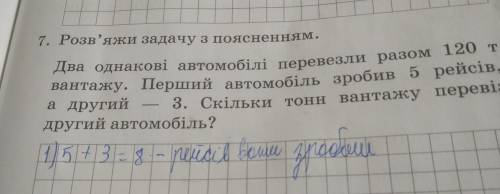 7. Розв'яжи задачу з поясненням.
Два однакові автомобілі перевезли разом 120 т
вантажу. Перший автомобіль зробив 5 рейсів,
а другий — 3. Скільки тонн вантажу перевіз
другий автомобіль?
1) 5 + 3 = 8 - рейсів вони зробили